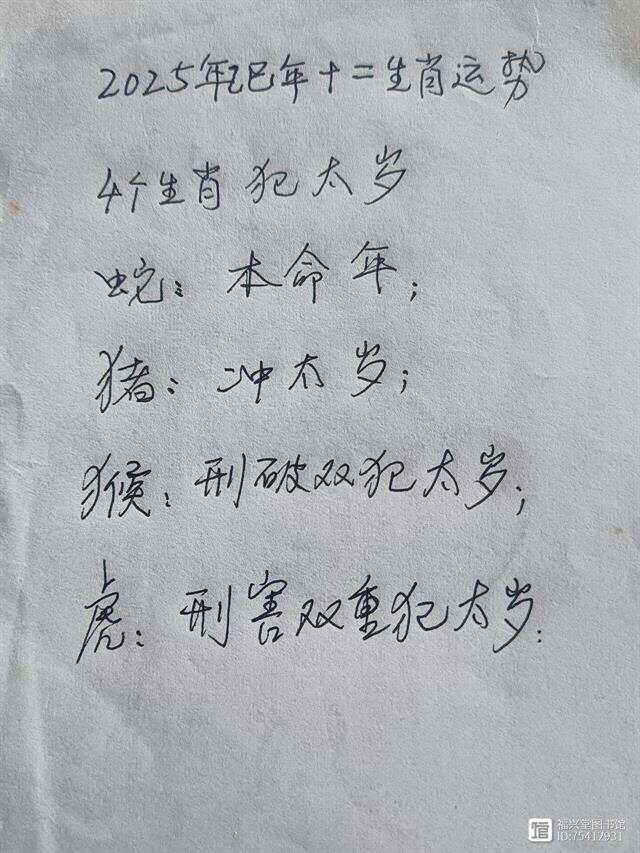 2025年乙巳年十二生肖运势
4个生肖犯太岁
蛇：本命年；
猪：冲太岁；
猴：刑破双犯太岁；
虎：刑害双重犯太岁.
福兴堂图书馆
ID:75417931